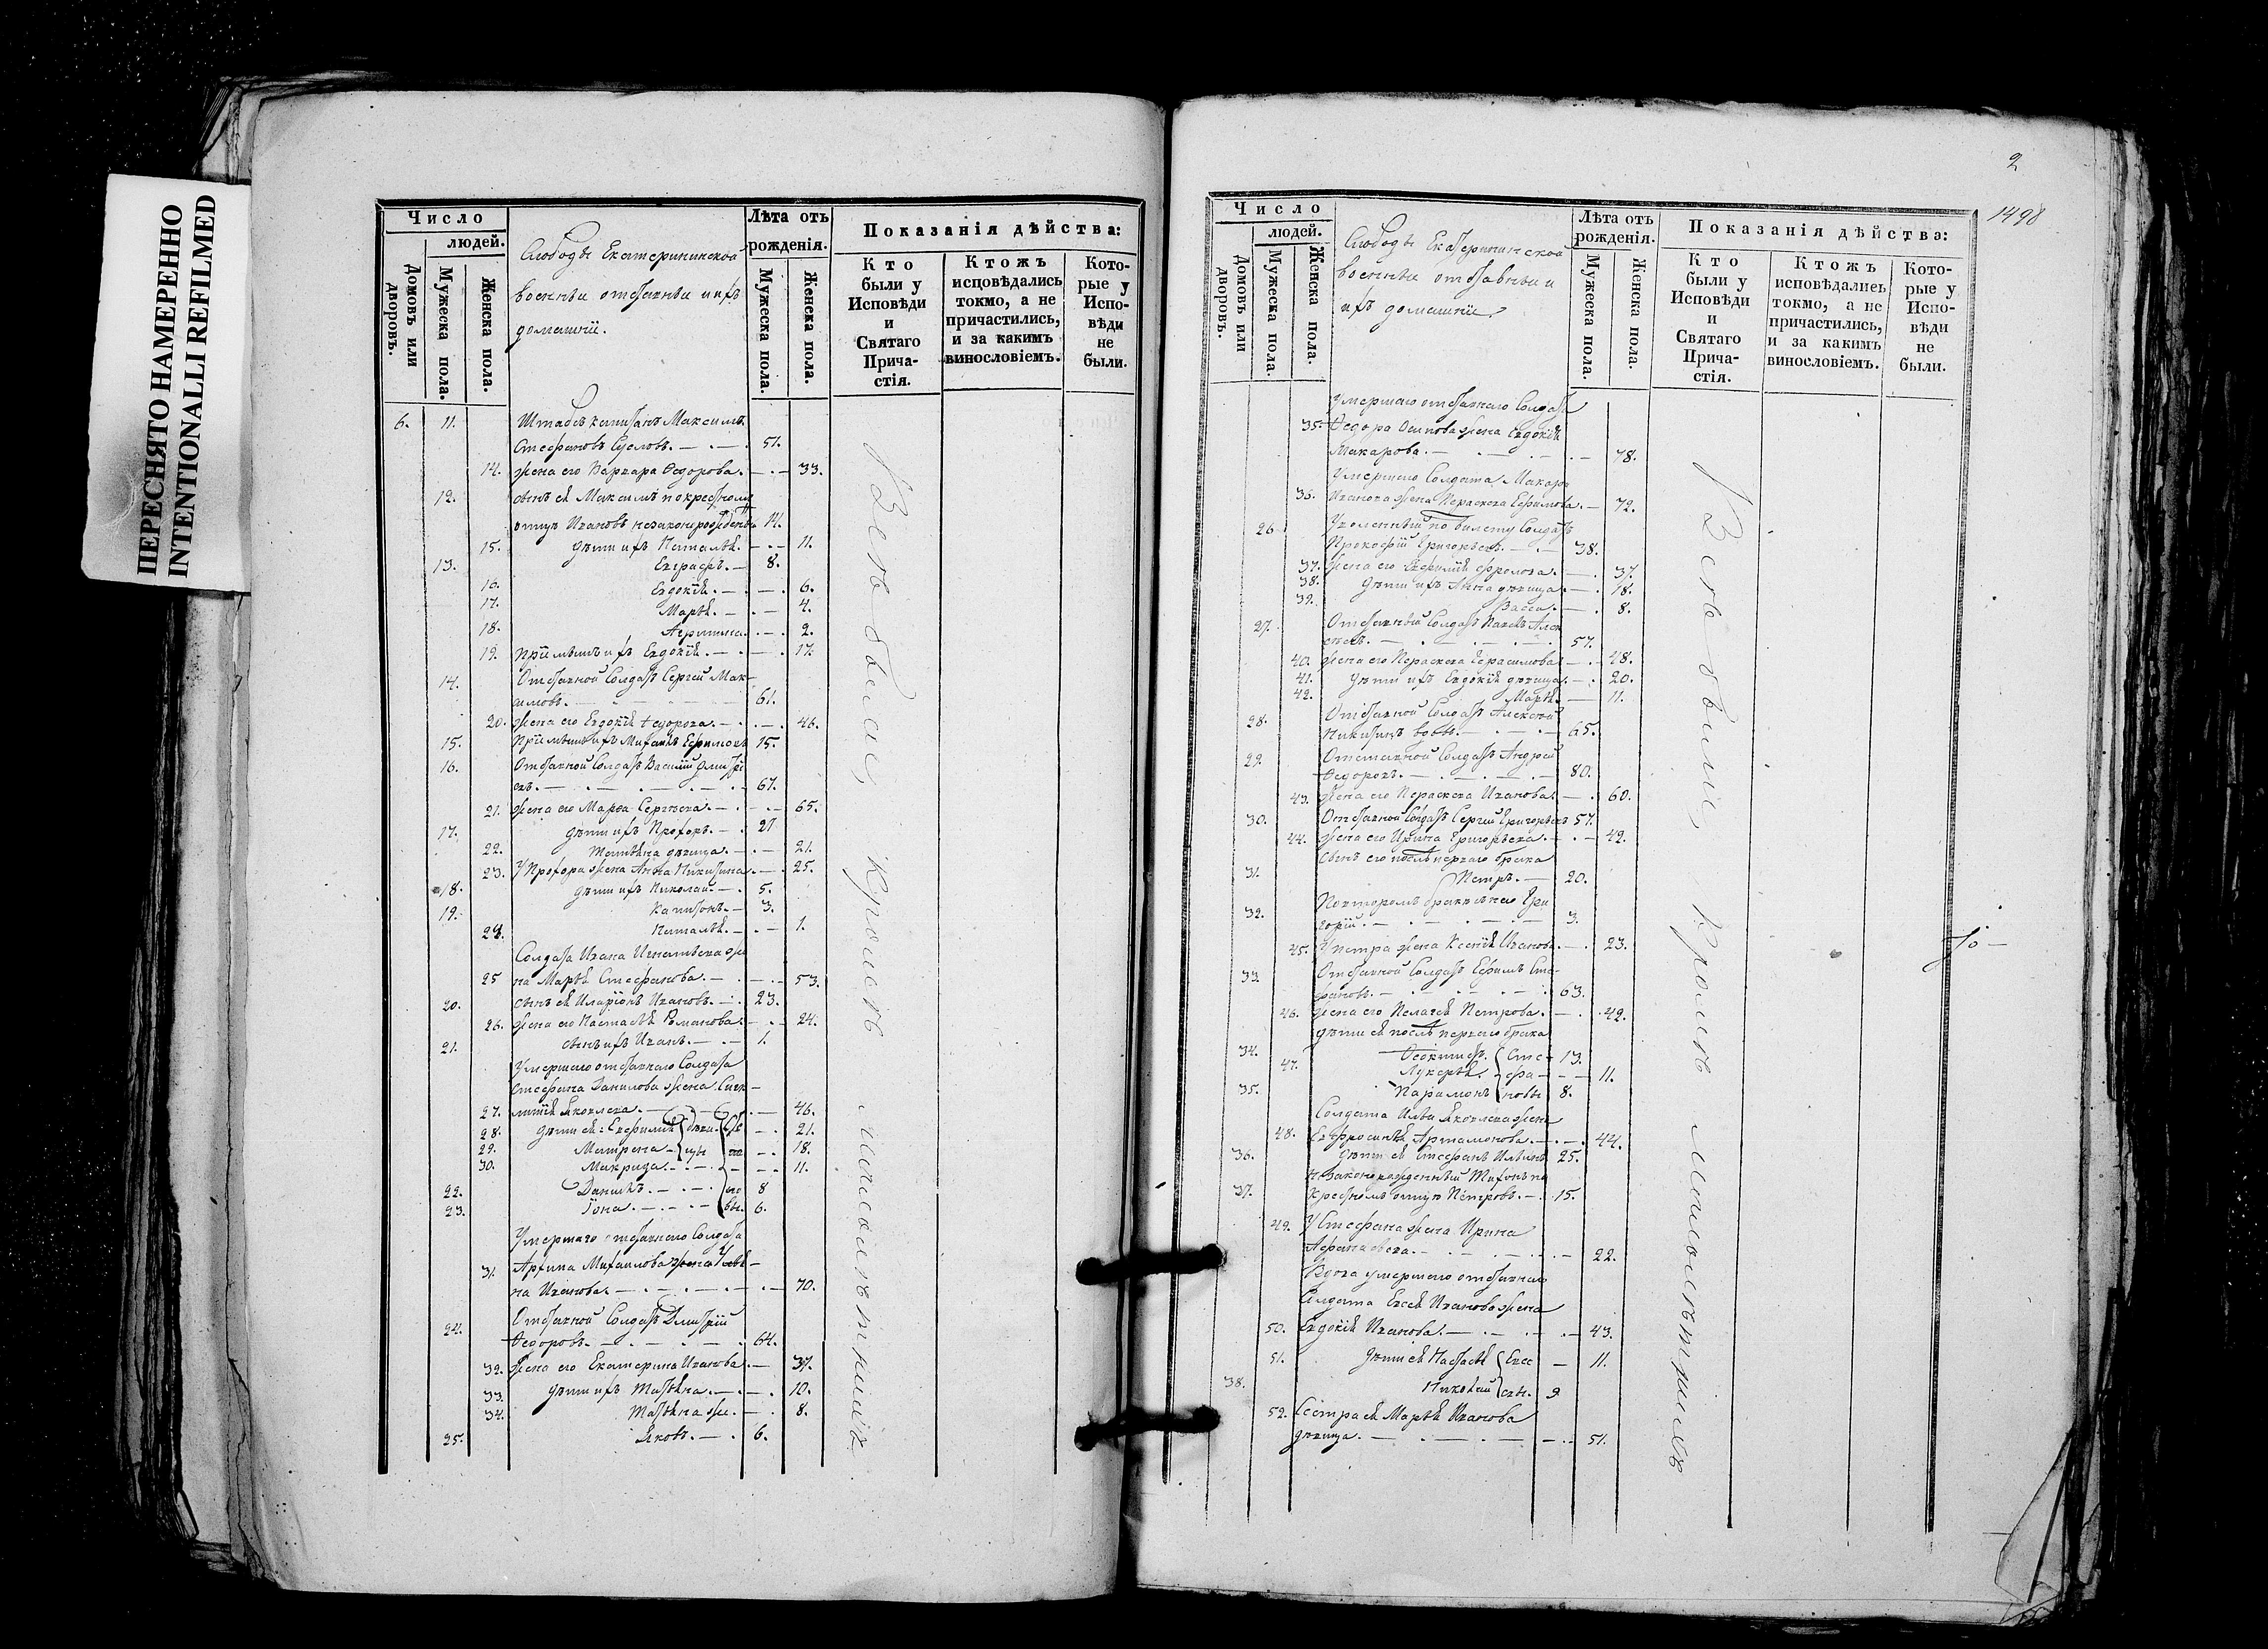 ПЕРЕСНЯТО НАМЕРЕННО
INTENTIONALLI REFILMED
Число
людей.
Домовъ или дворовъ.
Мужеска пола.
Женска пола.
Слободы Екатерининской
военныи отставныи и ихъ
домашнїи.
Лѣта отъ
рожденія.
Мужеска пола.
Женска пола.
Показанія дѣйства:
Кто
были у
Исповѣди
и
Святаго
Прича-
стія.
Ктожъ
исповѣдались
токмо, а не
причастились,
и за какимъ
винословіемъ.
Кото-
рые у
Испо-
вѣди
не
были.
6. 11. Штабсъ капитанъ Максимъ
Стефановъ Сусловъ. 51.
14. жена его Варвара Ѳедорова. 33.
12. сынъ ея Максимъ по крестному
отцу Ивановъ незаконорожденъ 14.
15. дѣти ихъ Наталья. 11.
13. Евграфъ. 8.
16. Евдокїя. 6.
17. Марья. 4.
18. 2.
19. Прїимышъ ихъ Евдокїя. 17.
14. Отставной Солдатъ Сергей Мак-
симовъ. 61.
20. жена его Евдокїя Ѳедорова. 46.
15. Прїимышъ ихъ Михаилъ Ефимовъ 15.
16. Отставной Солдатъ Василїй Дмитрї
евъ. 67.
21. жена его Марѳа Сергѣева. 65.
17. дѣти ихъ Прохоръ. 27
22. Татьяна дѣвица. 21.
23. У Прохора жена Анна Никитина. 25.
18. дѣти ихъ Николай. 5.
19. Капитонъ. 3.
24. Наталья. 1.
Солдата Ивана Игнатьева же
25 на Марья Стефанова. 53.
20. сынъ ея Иларїонъ Ивановъ. 23.
26. жена его Настасья Романова. 24.
21. сынъ ихъ Иванъ. 1.
Умершаго отставнаго Солдата
Стефана Данилова жена Синк-
27. литїя Яковлева. 46.
28. дѣти ея: Евфимия дѣви Сте 21.
29. Матрена цы фа 18.
30. Макрида. 11.
22. Данїилъ. но 8
23. Їона. вы. 6.
Умершаго отставнаго Солдата
31. Архипа Михаилова жена Улья-
на Иванова. 70.
24. Отставной Солдатъ Дмитрїй
Ѳедоровъ. 64.
32. жена его Екатерина Иванова. 37.
33. дѣти ихъ Татьяна. 10.
34. Татьяна же. 8.
25. Яковъ. 6.
Всѣ были, кромѣ малолѣтнихъ.
2
1498
Число
людей.
Домовъ или дворовъ.
Мужеска пола.
Женска пола.
Слободы Екатерининской
военныи отставныи и
ихъ домашнїи
Лѣта отъ
рожденія.
Мужеска пола.
Женска пола.
Показанія дѣйства:
Кто
были у
Исповѣди
и
Святаго
Прича-
стія.
Ктожъ
исповѣдались
токмо, а не
причастились,
и за какимъ
винословіемъ.
Кото-
рые у
Испо-
вѣди
не
были.
Умершаго отставнаго Солдата
35. Ѳедора Осипова жена Евдокїя
Макарова. 78.
Умершаго Солдата Макара
36. Иванова жена Параскева Ефимова. 72.
26. Уволенный по билету Солдатъ
Прокофїй Григорьевъ. 38.
37. жена его Евфимїя Фролова. 37.
38. дѣти ихъ Анна дѣвица. 18.
39. Васса. 8.
27. Отставный Солдатъ Павелъ Алек
сѣевъ. 57.
40. жена его Параскева Герасимова. 48.
41. дѣти ихъ Евдокїя дѣвица. 20.
42. Марья. 11.
28. Отставной Солдатъ Алексей
Никитинъ вдовъ. 65.
29. Отставной Солдатъ Андрей
Ѳедоровъ. 80.
43. жена его Параскева Иванова. 60.
30. Отставной Солдатъ Сергей Григорьевъ 57.
44. жена его Ирина Григорьева. 42.
сынъ его послѣ перваго брака
31. Петръ. 20.
По второмъ бракѣ Гри
32. горїй. 3.
45. У Петра жена Ксенїя Иванова. 23.
33. Отставной Солдатъ Ефимъ Сте-
фановъ. 63.
46. жена его Пелагея Петрова. 42.
дѣти ея послѣ перваго брака
34. Ѳеоктистъ. Сте- 13.
47. Лукерья. фа- 11.
35. Парамонъ новы 8.
Солдата Ильи Яковлева жена
48. Евфросинья Артамонова. 44.
36. дѣти ея Стефанъ Ильинъ 25.
незаконорожденный Тихонъ по
37. крестному отцу Петровъ. 15.
49. У Стефана жена Ирина
Афанасьева. 22.
Вдова умершаго отставнаго
Солдата Евсея Иванова жена
50. Евдокїя Иванова. 43.
51. дѣти ея Настасья Евсе 11.
38. евы. 9
52. Сестра ея Марья Иванова
дѣвица. 51.
Всѣ были, кромѣ малолѣтнихъ